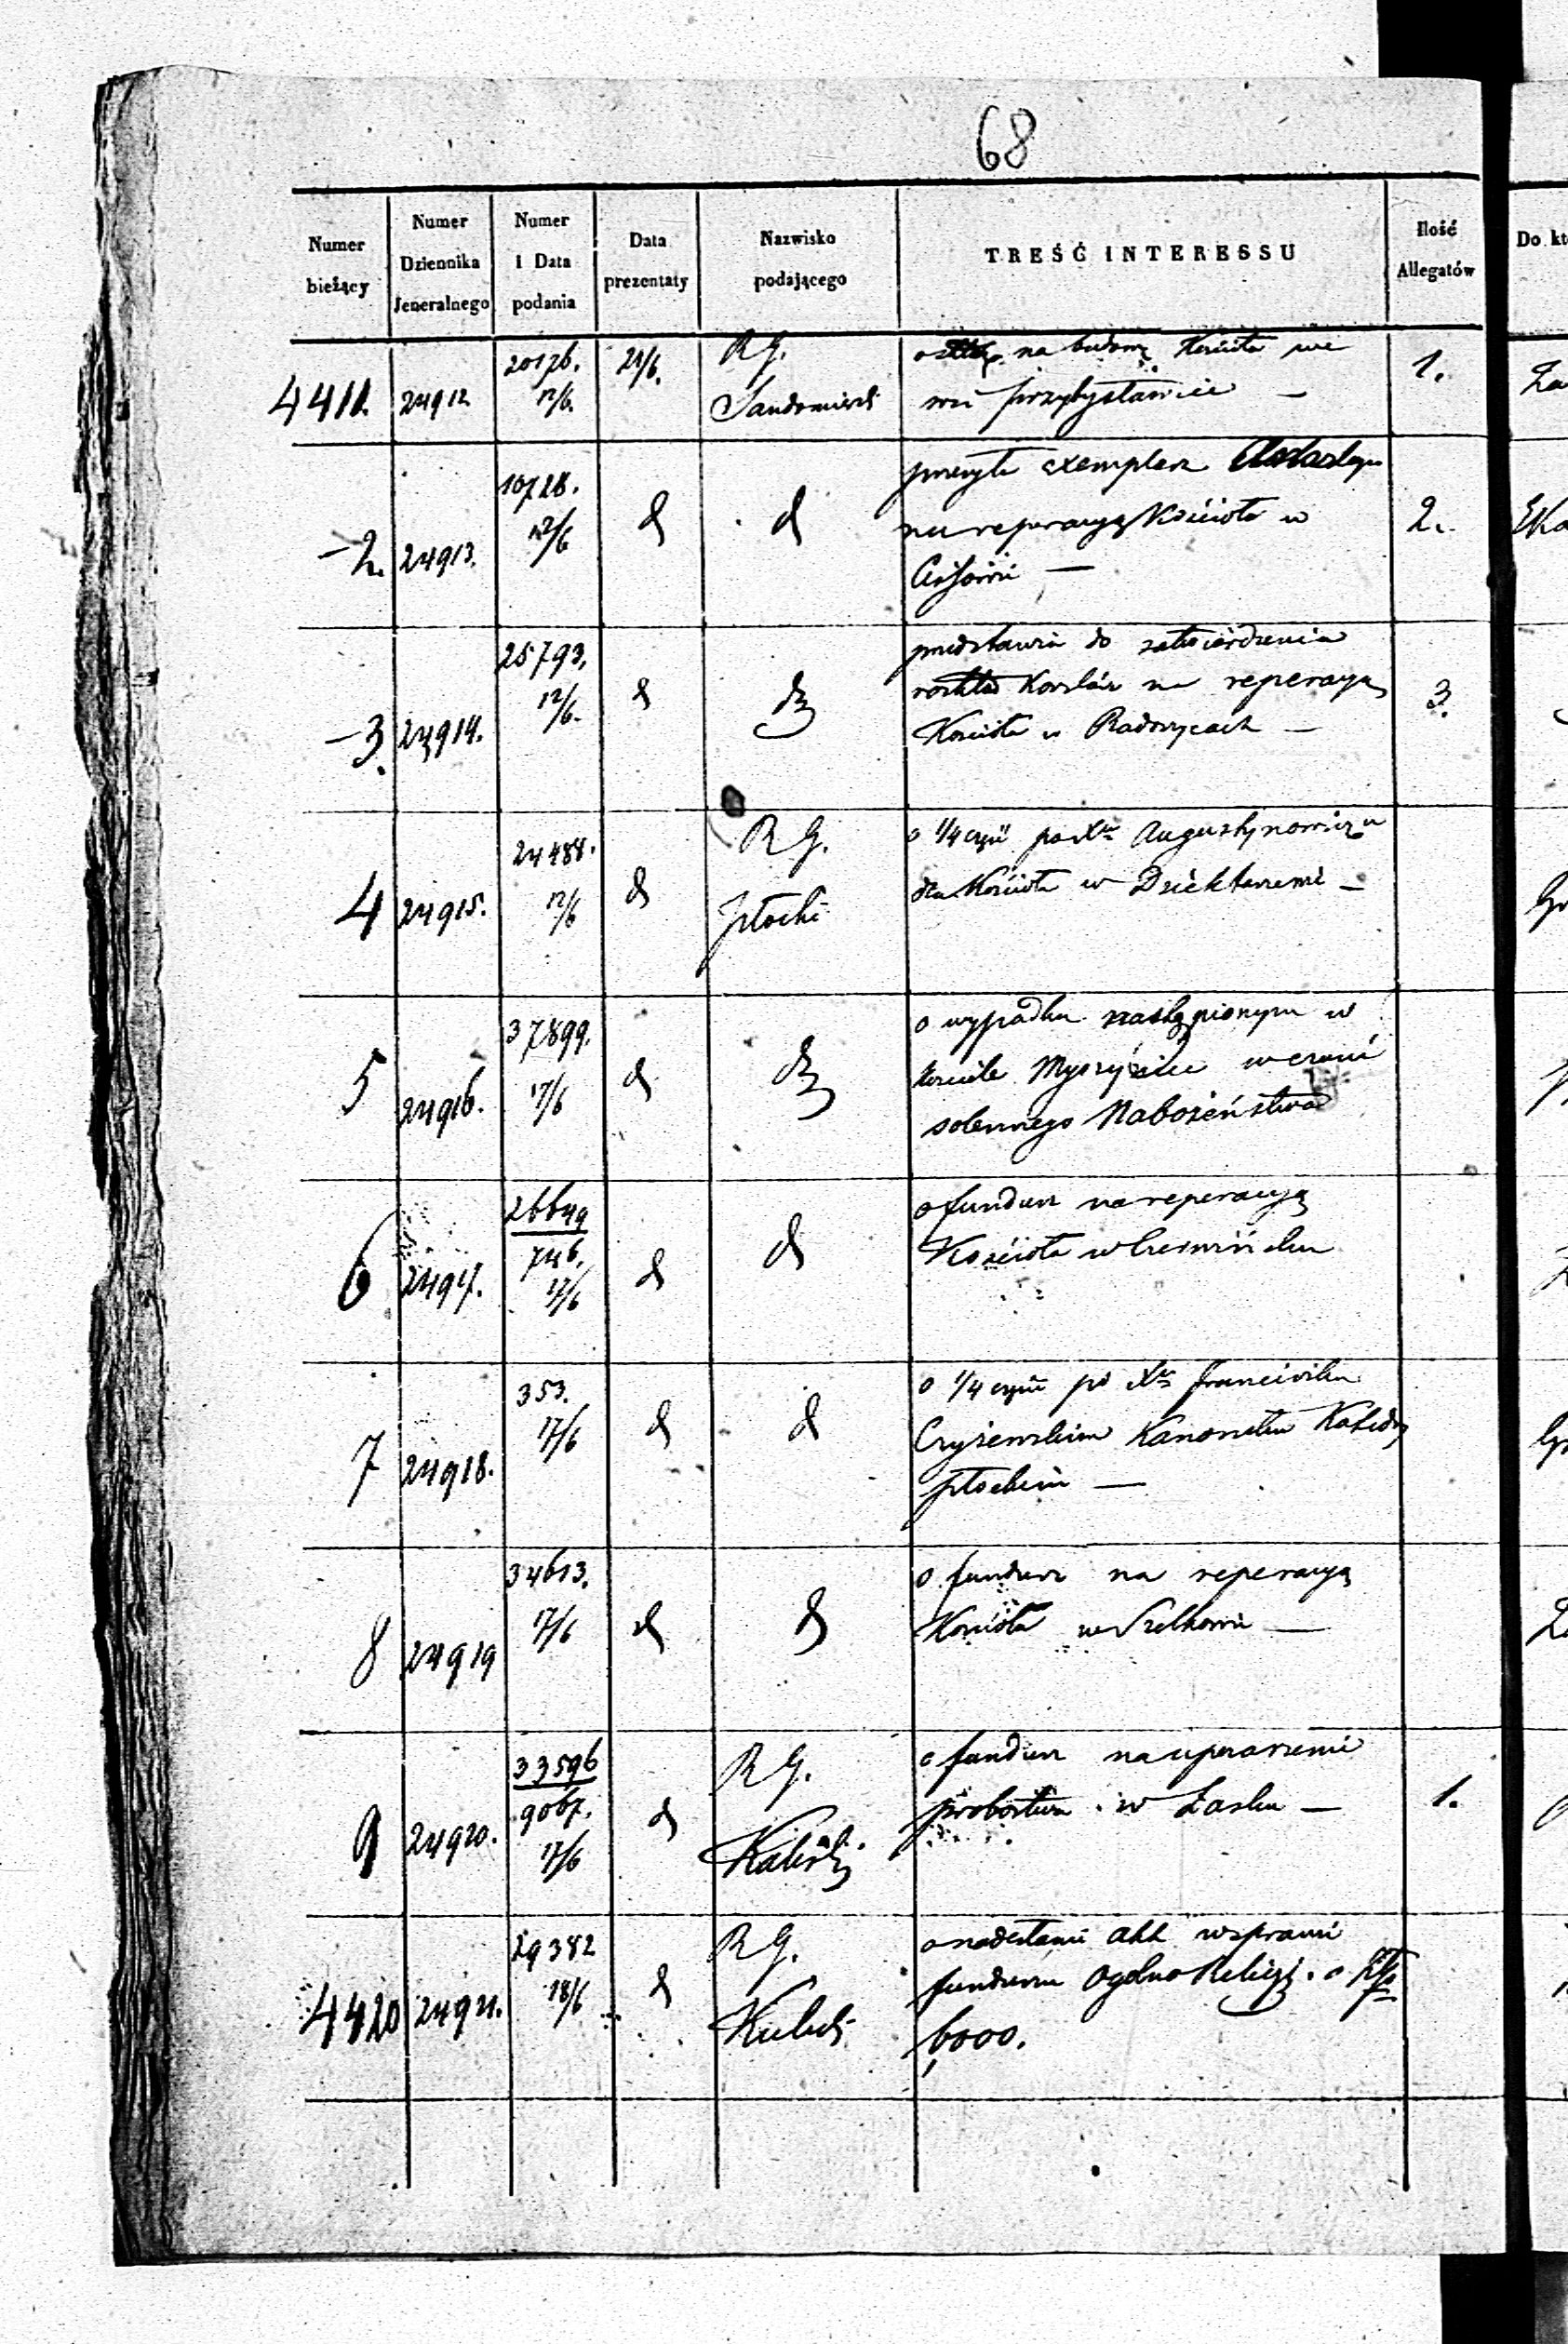 68
Numer bieżący | Numer Dziennika Jeneralnego | Numer i Data podania | Data prezentaty | Nazwisko podającego | TREŚĆ INTERESSU | Ilość Allegatów | Do kt
4411. | 24912. | 20176. 12/6. | 21/6. | RG. Sandomierski | na budowę Kościoła we | 1. | Za
wsi Przybysławice —
–2. | 24913. | 10728. 12/6 | d | d | przesyła exemplarz | 2.
na reperacyą Kościoła w
—
–3. | 24914. | 25793. 12/6. | d | d | przedstawia do zatwierdzenia | 3.
rozkład kosztów na reperacyą
Kościoła w Radoszycach —
4 | 24915. | 24488. 12/6 | d | RG. Płocki | o 1/4 części po Xdzu Augustynowiczu
dla Kościoła w Dziektarzewie —
5 | 24916. | 37899. 17/6 | d | d | o wypadku nastąpionym w
kościele Myszyniec w czasie
solennego Nabożeństwa
6 | 24917. | 26649 746. 17/6 | d | d | o fundusz na reperacyą
Kościoła w Czerwińsku
7 | 24918. | 353. 17/6 | d | d | o 1/4 części po Xdzu Franciszku
Czyżewskim Kanoniku Katedry
płockiej —
8 | 24919 | 34613. 17/6 | d | d | o fundusz na reperacyą
Kościoła w Szelkowie —
9 | 24920. | 33596 9067. 17/6 | d | RG. Kaliski | o fundusz na uposażenie | 1.
probostwa w Łasku —
4420 | 24921. | 29382 18/6 | d | RG. | o nadesłanie akt w sprawie
funduszu Ogólno Religij. o
6000.